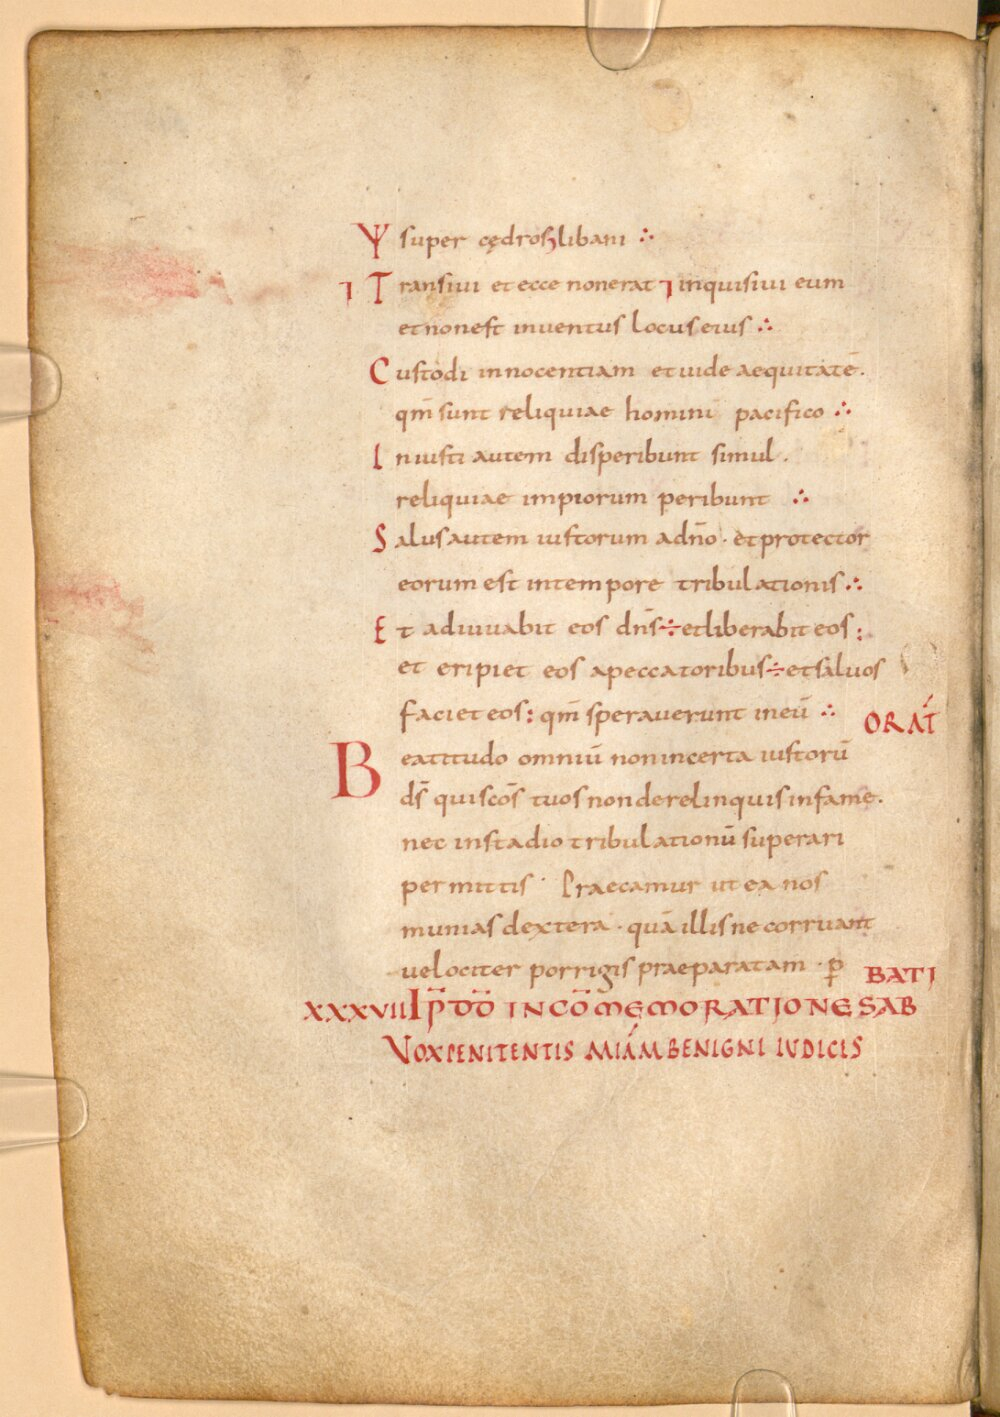 Ꝟ super cędros libani ∴
⁊ Transiui et ecce non erat ⁊ inquisiui eum
et non est inuentus locus eius ∴
Custodi innocentiam et uide aequitatē.
qm̄ sunt reliquiae homini pacifico ∴
Iniusti autem disperibunt simul.
reliquiae impiorum peribunt ∴
Salus autem iustorum a dn̄o · et protector
eorum est in tempore tribulationis ∴
Et adiuuabit eos dn̄s ÷ et liberabit eos :
et eripiet eos a peccatoribus ÷ et saluos
faciet eos : qm̄ sperauerunt in eū ∴
ORAT̄
Beatitudo omniū non incerta iustorū
ds̄ qui scōs tuos non derelinquis in fame.
nec in stadio tribulationū superari
permittis · Praecamur ut ea nos
munias dextera · quā illis ne corruant
velociter porrigis praeparatam · p̄
BATI
XXXVII IP̄ DD̄ IN CŌMEMORATIONE SAB
VOX PENITENTIS MIAM BENIGNI IUDICIS